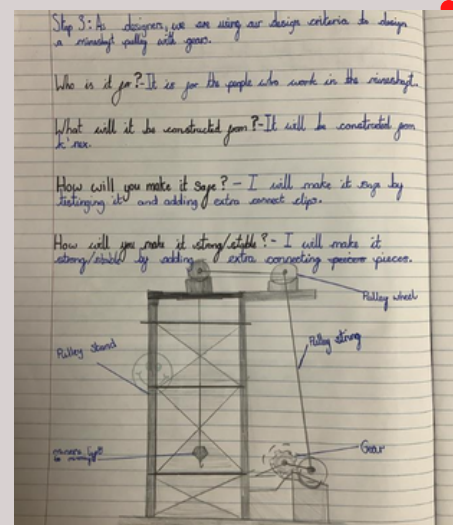 Step 3: As designers, we are using our design criteria to design
a mineshaft pulley with gears.
Who is it for? - It is for the people who work in the mineshaft.
What will it be constructed from? - It will be constructed from
k'nex.
How will you make it safe? - I will make it safe by
testinging it and adding extra connect clips.
How will you make it strong/stable? - I will make it
strong/stable by adding extra connecting pieces.
Pulley wheel
Pulley stand
Pulley string
Gear